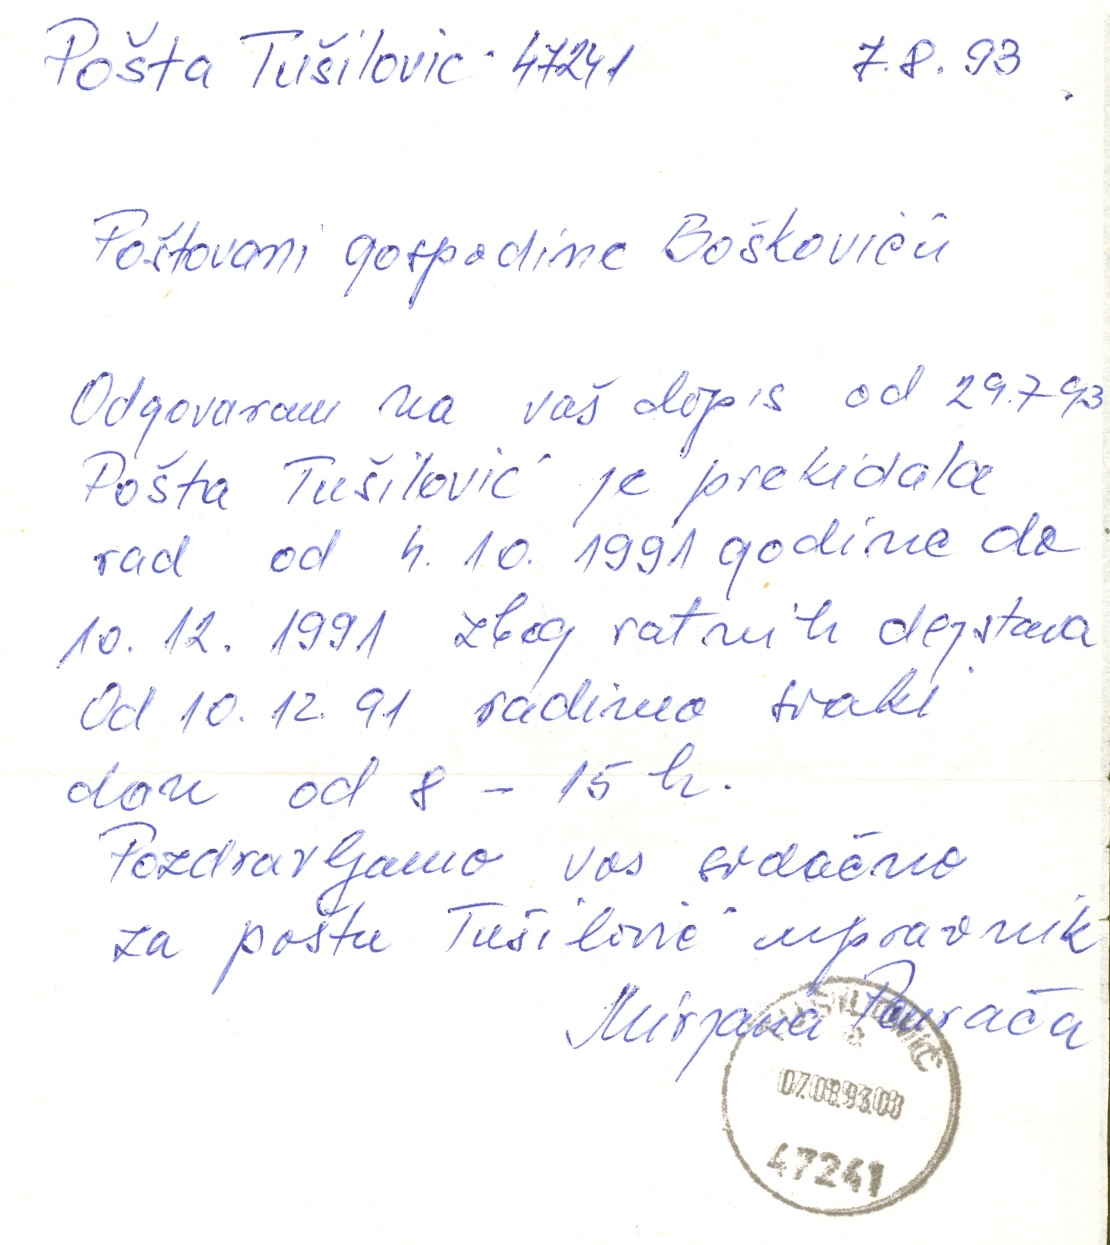 Pošta Tušilovic 47241 7.8.93
Poštovani gospodine Boškoviću
Odgovaram na vaš dopis od 29.7.93
Pošta Tušilović je prekidala
rad od 4.10.1991 godine do
10.12.1991 zbog ratnih dejstava
Od 10.12.91 radimo svaki
dan od 8 - 15 h.
Pozdravljamo vas srdačno
za poštu Tušilović upravnik
Mirjana
TUŠILOVIĆ
07.08.93.08
47241